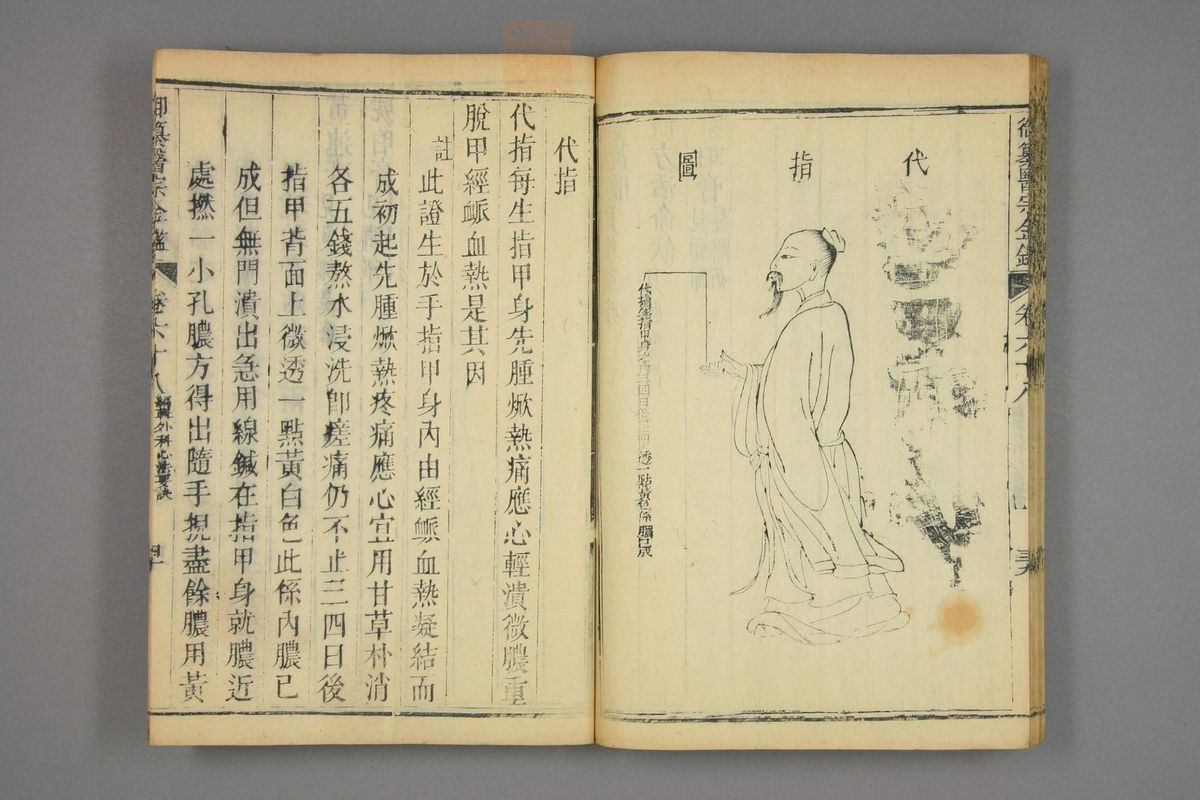 御纂醫宗金鑑
卷六十八
代指圖
代指生指甲身
三四日後
透一點黃
係膿已成
代指
代指每生指甲身先腫焮熱痛應心輕潰微膿重
脫甲經脈血熱是其因
註
此證生於手指甲身內由經脈血熱凝結而
成初起先腫焮熱疼痛應心宜用甘草朴消
各五錢熬水浸洗卽瘥痛仍不止三四日後
指甲背面上微透一點黃白色此係內膿已
成但無門潰出急用線鍼在指甲身就膿近
處撚一小孔膿方得出隨手捝盡餘膿用黃
御纂醫宗金鑑
卷六十八
編輯外科心法要訣